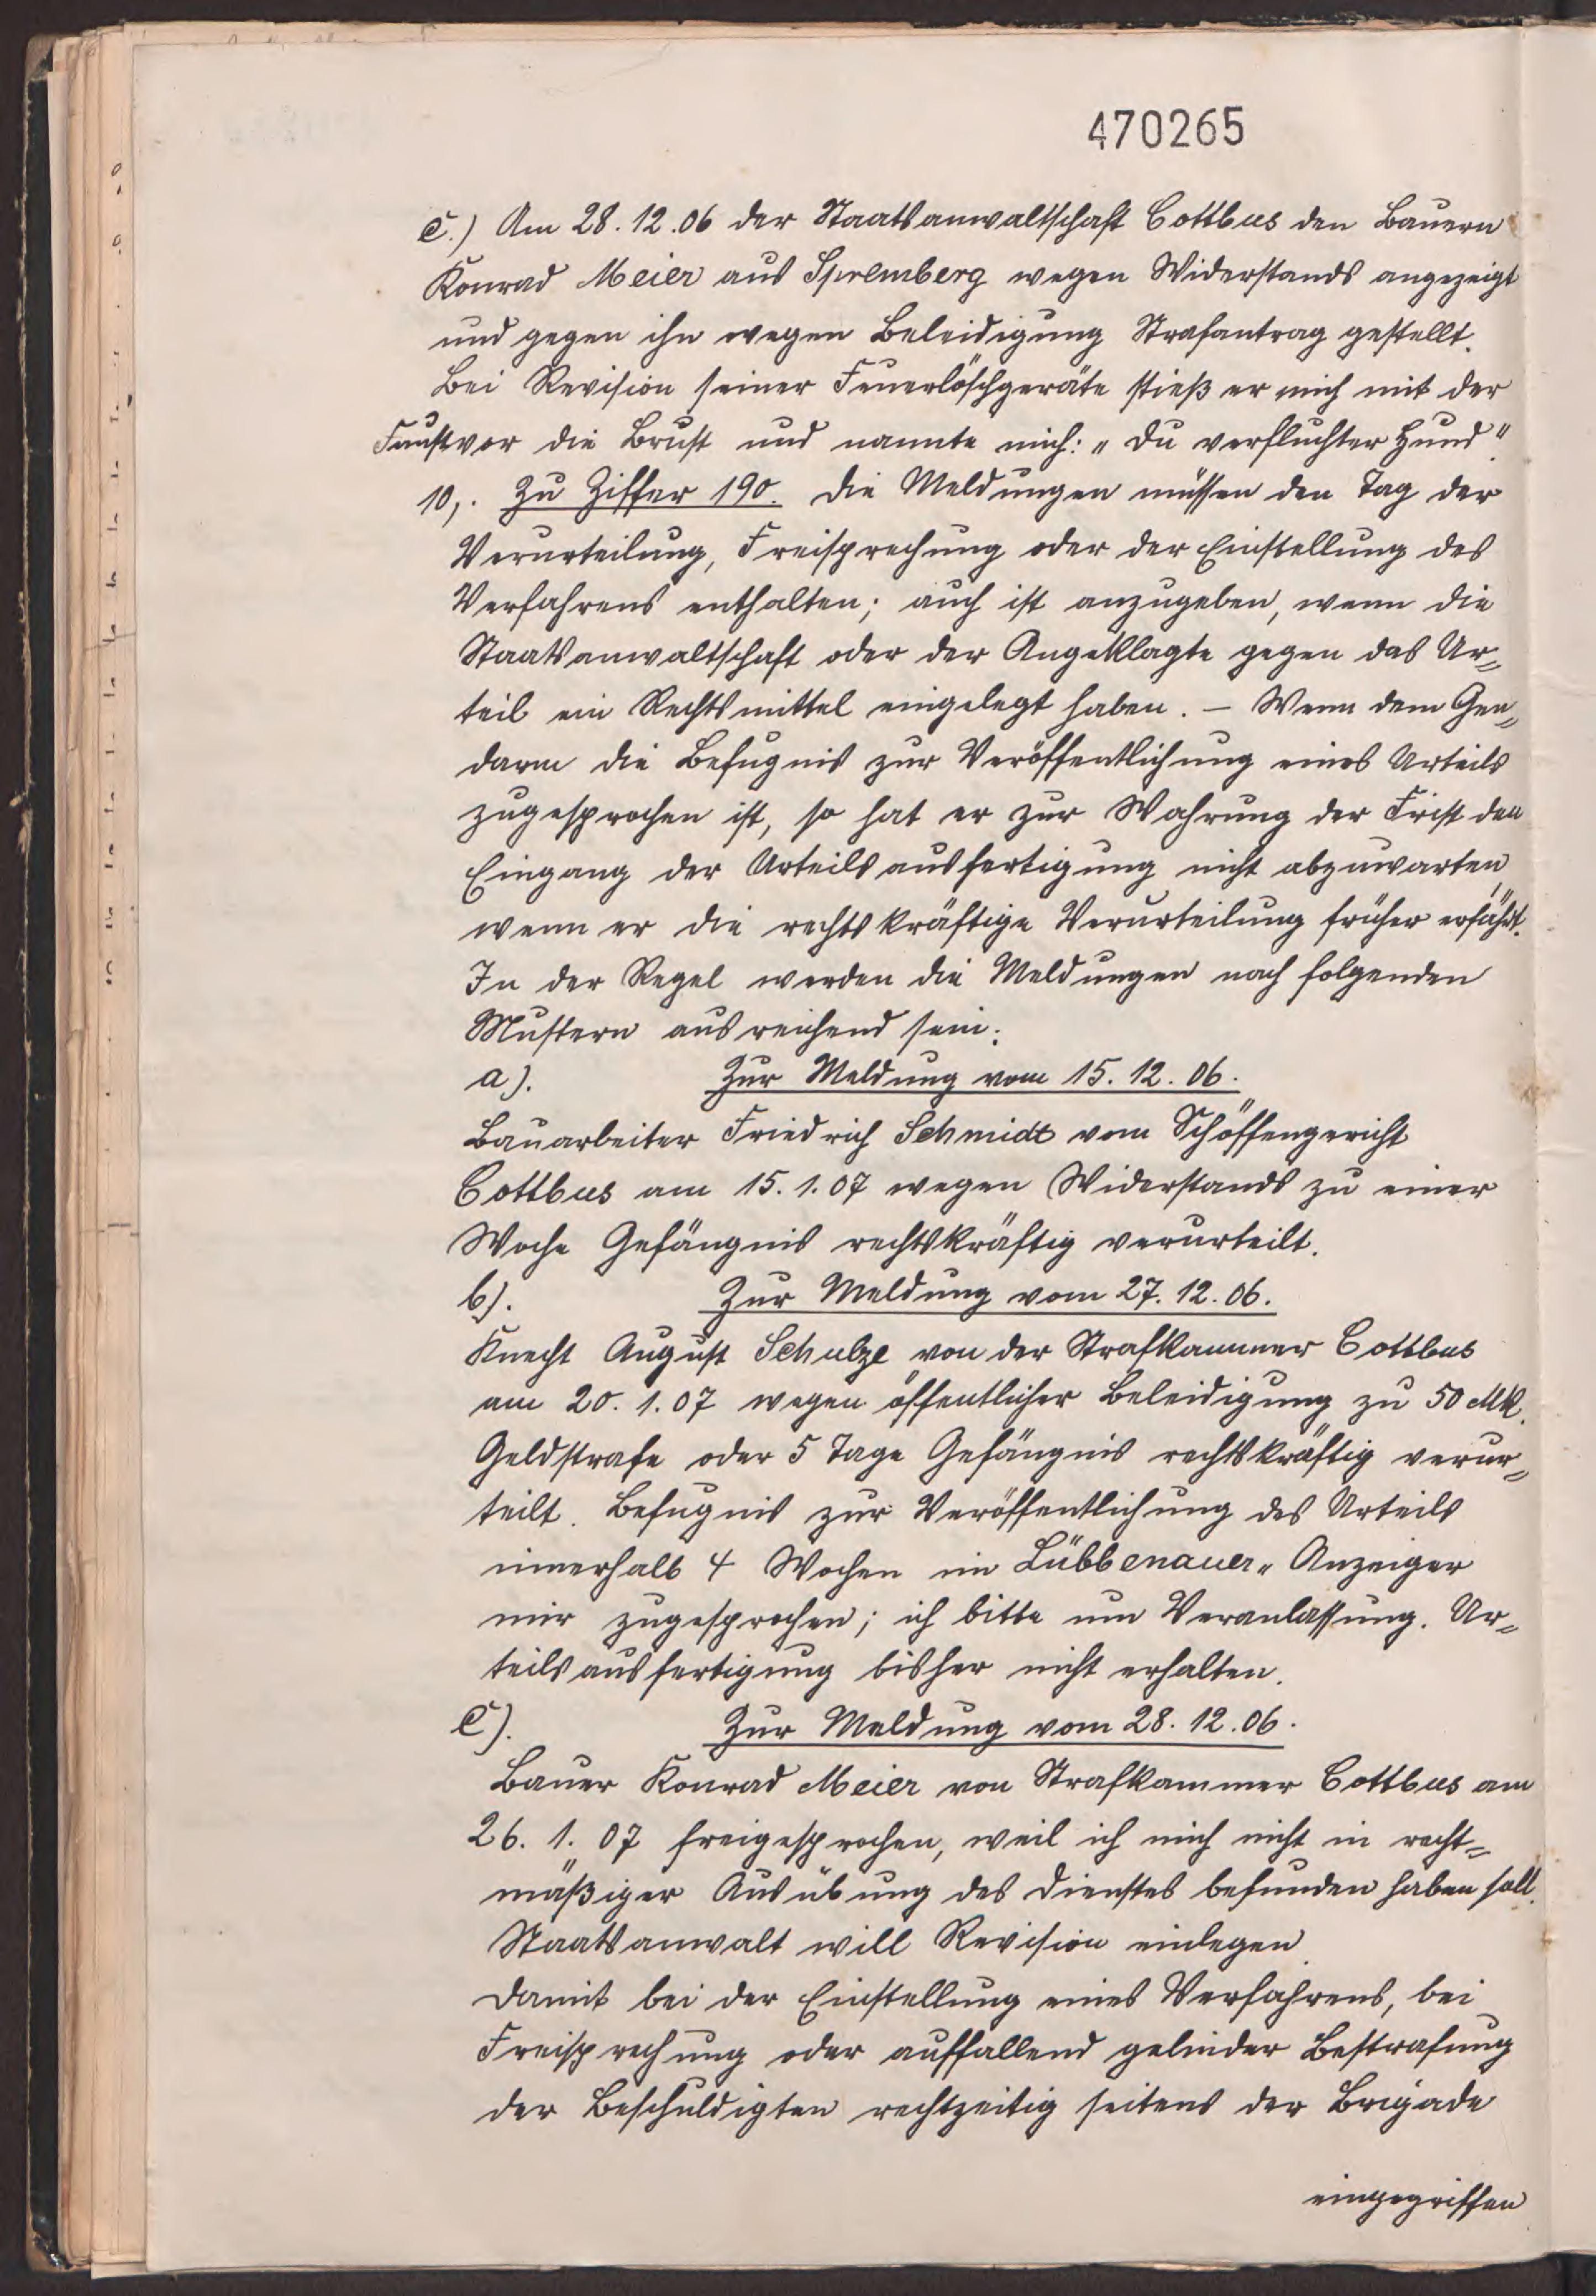 470265
c.) Am 28.12.06 der Staatsanwaltschaft Cottbus den Bauern
Konrad Meier aus Spremberg wegen Widerstands angezeigt
und gegen ihn wegen Beleidigung Strafantrag gestellt.
Bei Revision seiner Feuerlöschgeräte stieß er mich mit der
Faust vor die Brust und nannte mich: „Du verfluchter Hund".
10,. Zu Ziffer 190. Die Meldungen müssen den Tag der
Verurteilung, Freisprechung oder der Einstellung des
Verfahrens enthalten; auch ist anzugeben, wenn die
Staatsanwaltschaft oder der Angeklagte gegen das Ur=
teil ein Rechtsmittel eingelegt haben. – Wenn dem Gen=
darm die Befugnis zur Veröffentlichung eines Urteils
zugesprochen ist, so hat er zur Wahrung der Frist den
Eingang der Urteilsausfertigung nicht abzuwarten,
wenn er die rechtskräftige Verurteilung früher erfährt.
In der Regel werden die Meldungen nach folgenden
Mustern ausreichend sein:
a). Zur Meldung vom 15.12.06.
Bauarbeiter Friedrich Schmidt vom Schöffengericht
Cottbus am 15.1.07 wegen Widerstands zu einer
Woche Gefängnis rechtskräftig verurteilt.
b). Zur Meldung vom 27.12.06.
Knecht August Schulze von der Strafkammer Cottbus
am 20.1.07 wegen öffentlicher Beleidigung zu 50 Mk.
Geldstrafe oder 5 Tage Gefängnis rechtskräftig verur=
teilt. Befugnis zur Veröffentlichung des Urteils
innerhalb 4 Wochen im Lübbenauer „ Anzeiger
mir zugesprochen; ich bitte um Veranlassung. Ur=
teilsausfertigung bisher nicht erhalten.
c). Zur Meldung vom 28.12.06.
Bauer Konrad Meier von Strafkammer Cottbus am
26.1.07 freigesprochen, weil ich mich nicht in recht=
mäßiger Ausübung des Dienstes befunden haben soll.
Staatsanwalt will Revision einlegen.
Damit bei der Einstellung eines Verfahrens, bei
Freisprechung oder auffallend gelinder Bestrafung
der Beschuldigten rechtzeitig seitens der Brigade
eingegriffen